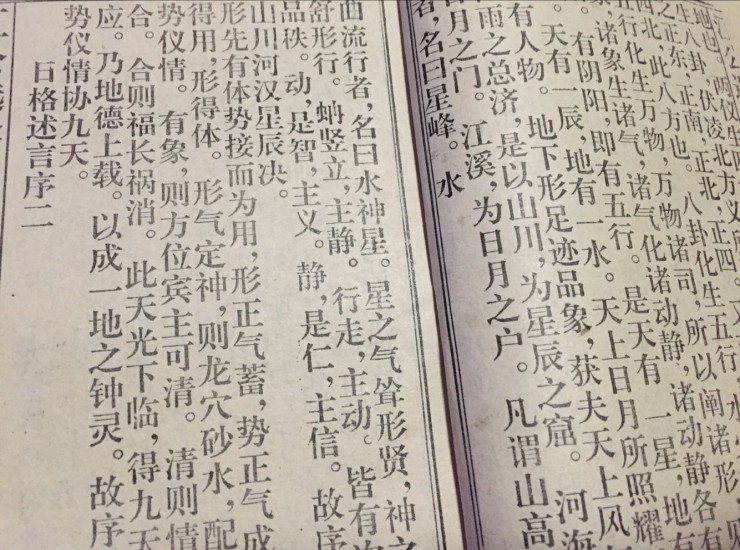 地也。两仪生四
生八卦，伏凌北方义所
之正东，正南，正北，正四。又
四北，此八方也。八卦化生五行
五行化生万物，万物诸司，所以阐诸形
，诸象生诸气，诸气化诸动静，诸动静各有
。有阴阳，即有五行。是天有一星，地有
。天有一辰，地有一水。天上日月所照耀
有人物。地下形足迹品象，获夫天上风
雨之总济，是以山川，为星辰之窟。河海
日月之门。江溪，为日月之户。凡谓山高
者，名曰星峰。水
曲流行者，名曰水神星。星之气耸形贤，神之
舒形行。蚺竖立，主静。行走，主动。皆有
品秩。动，是智，主义。静，是仁，主信。故序
山川河汉星辰决。
形先有体势接而为用，形正气蓄，势正气成
得用，形得体。形气定神，则龙穴砂水，配
势仪情。有象，则方位宾主可清。清则情
合。合则福长祸消。此天光下临，得九天
应。乃地德上载。以成一地之钟灵。故序
势仪情协九天。
日格述言序二